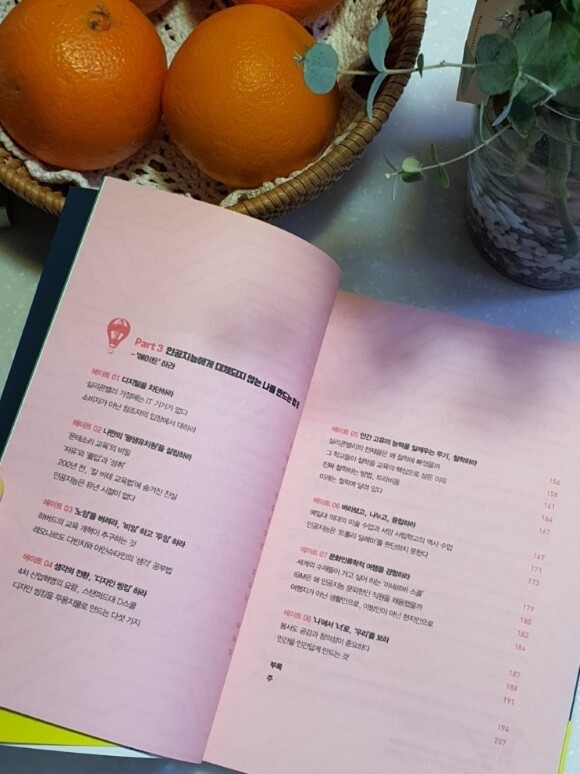 Part 3 인공지능에게 대체되지 않는 나를 만드는 법
– '에이트' 하라
에이트 01 디지털을 차단하라
실리콘밸리 가정에는 IT 기기가 없다
소비자가 아닌 창조자의 입장에서 대하라
에이트 02 나만의 '평생유치원'을 설립하라
'몬테소리 교육'의 비밀
'자유'와 '몰입'과 '성취'
200년 전, '칼 비테 교육법'에 숨겨진 진실
인공지능은 유년 시절이 없다
에이트 03 '노잉'을 버려라, '비잉' 하고 '두잉' 하라
하버드의 교육 개혁이 추구하는 것
레오나르도 다빈치와 아인슈타인의 '생각' 공부법
에이트 04 생각의 전환, '디자인 씽킹' 하라
4차 산업혁명의 요람, 스탠퍼드대 D스쿨
디자인 씽킹을 무용지물로 만드는 다섯 가지
에이트 05 인간 고유의 능력을 일깨우는 무기, 철학하라
실리콘밸리의 천재들은 왜 철학에 빠졌을까
그 학교들이 철학을 교육의 핵심으로 삼은 이유
진짜 철학하는 방법, 트리비움
미래는 철학에 달려 있다
에이트 06 바라보고, 나누고, 융합하라
예일대 의대의 미술 수업과 서양 사립학교의 역사 수업
인공지능은 '트롤리 딜레마'를 판단하지 못한다
에이트 07 문화인류학적 여행을 경험하라
세계의 수재들이 가고 싶어 하는 '미네르바 스쿨'
IBM은 왜 인공지능 문외한인 직원을 채용했을까
여행자가 아닌 생활인으로, 이방인이 아닌 현지인으로
에이트 08 '나'에서 '너'로, '우리'를 보라
봉사도 공감과 창의성이 중요하다
인간을 인간답게 만드는 것
부록
주
156
158
161
164
167
169
171
173
179
180
182
184
187
188
191
194
207